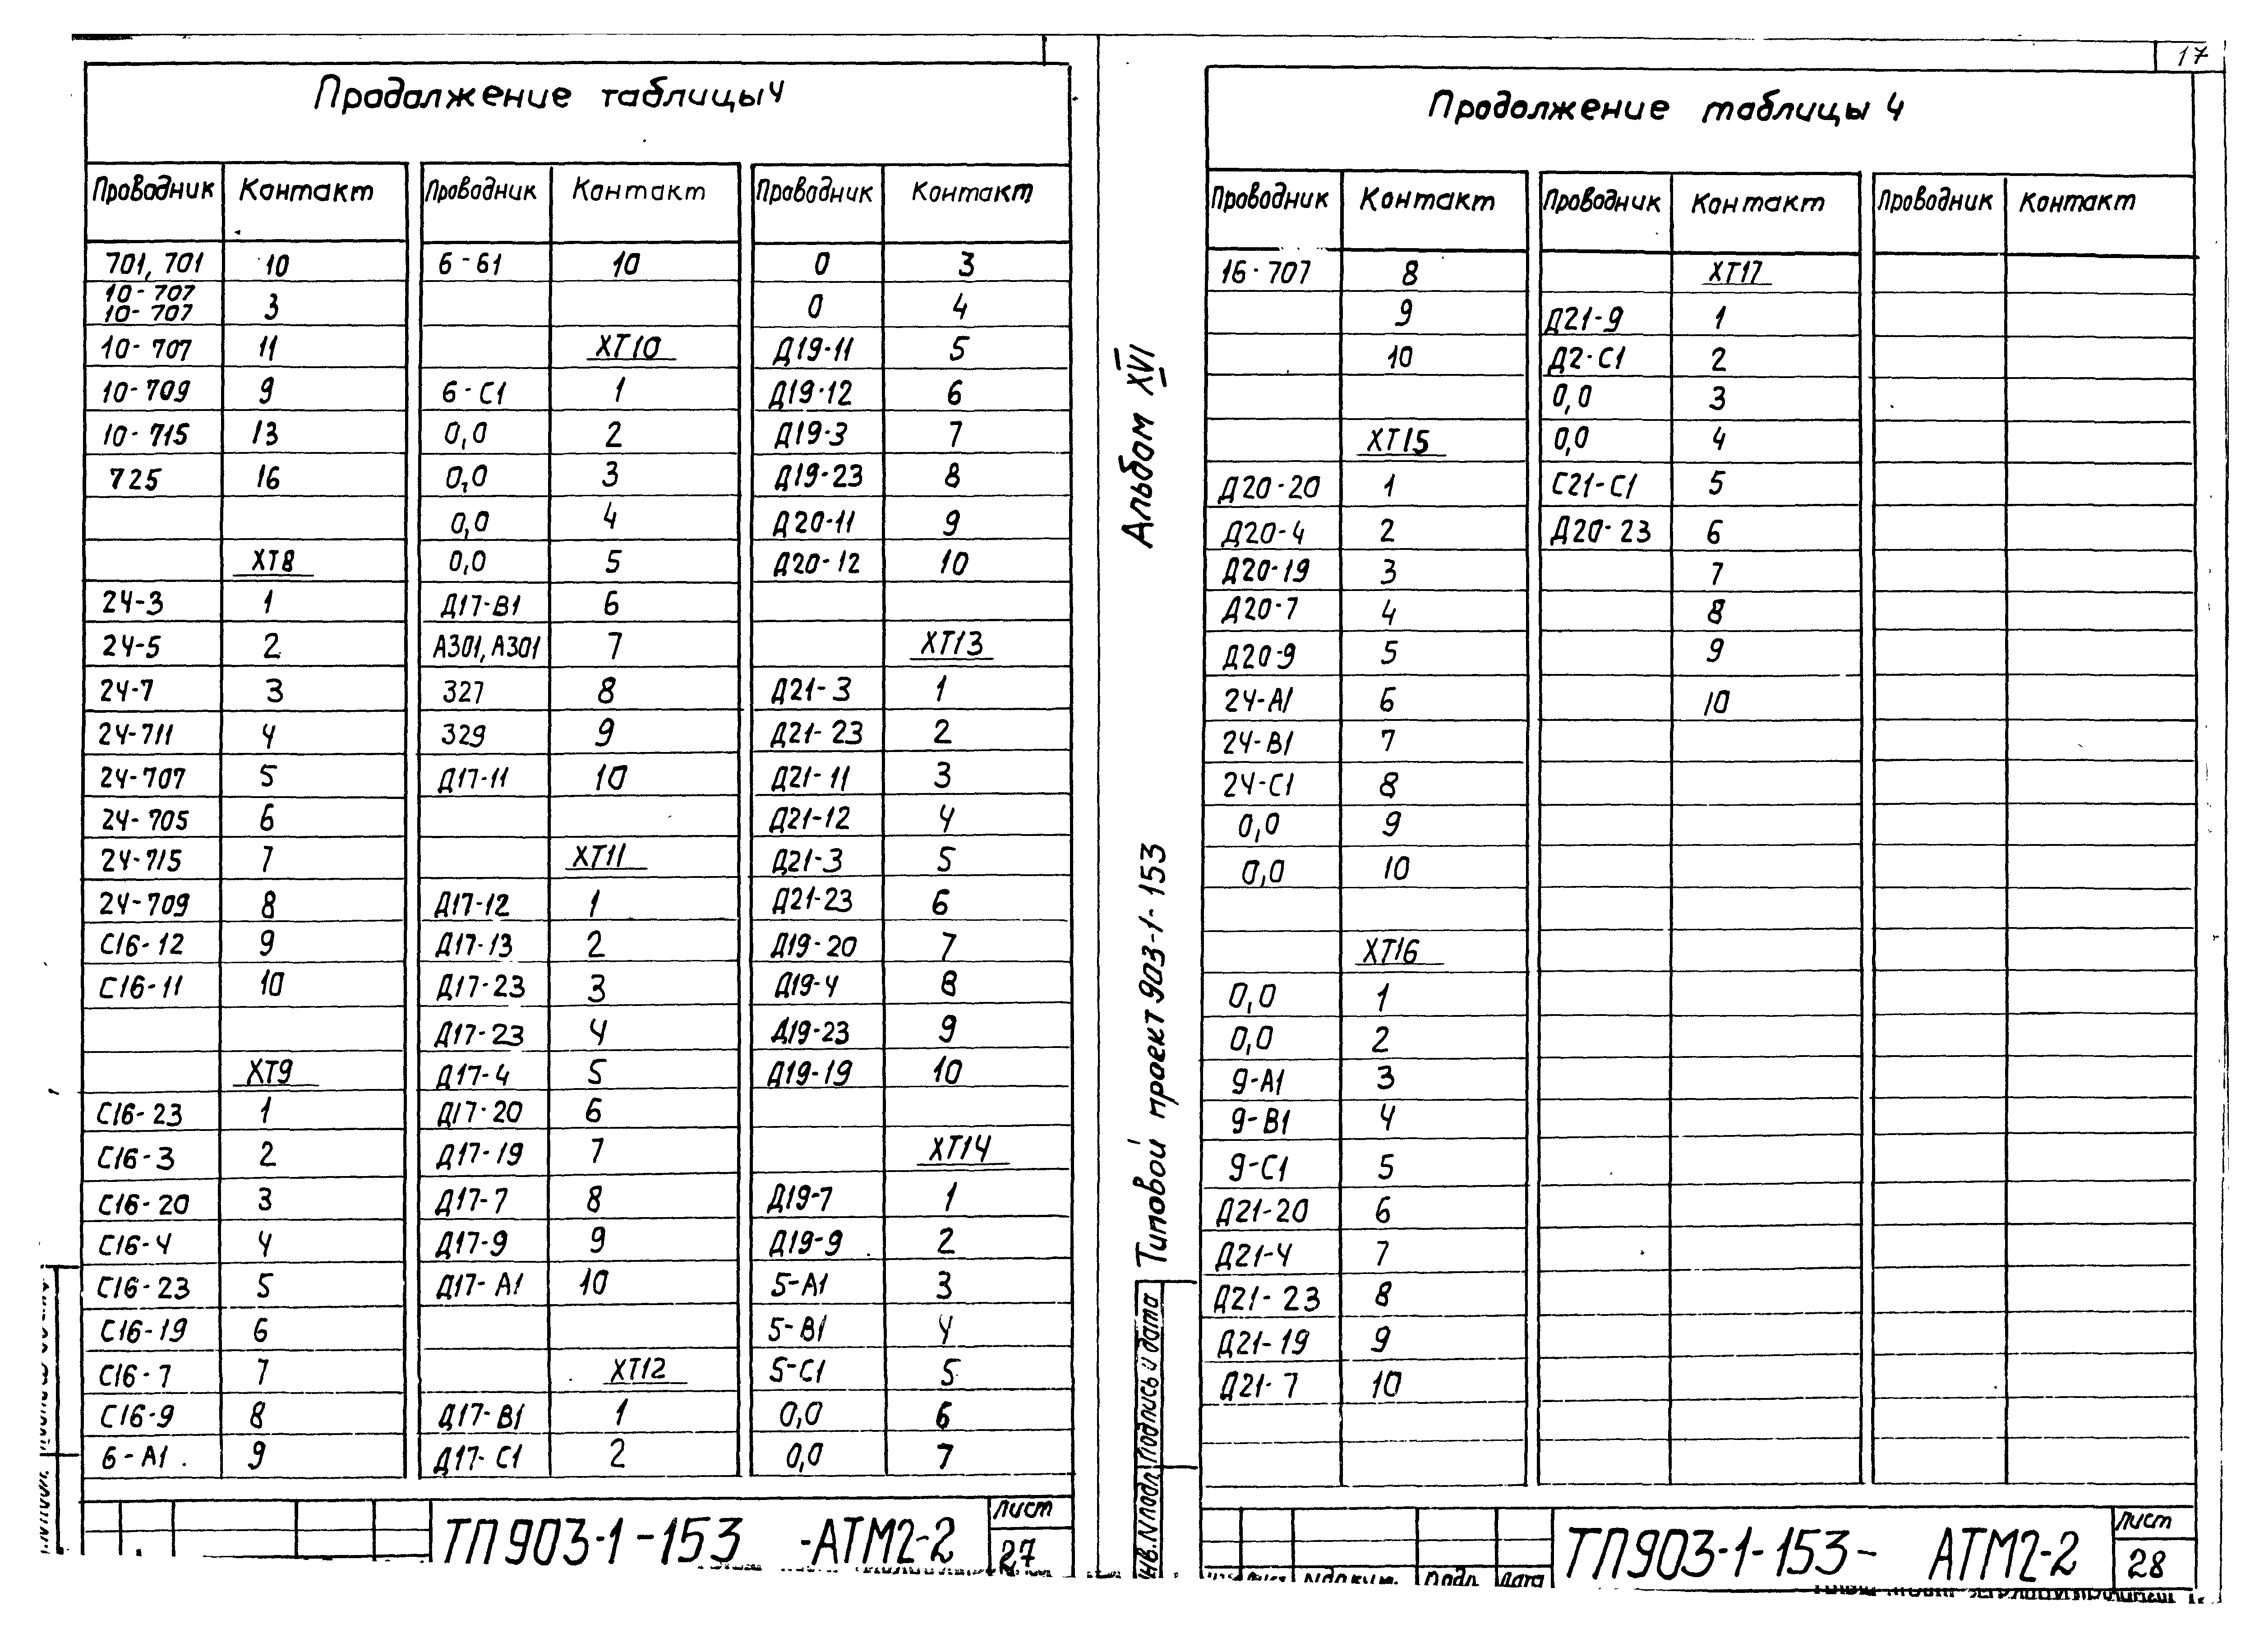 17
Продолжение таблицы 4
Проводник Контакт Проводник Контакт Проводник Контакт
701, 701 10 6-61 10 0 3
10-707
10-707 3 0 4
10-707 11 ХТ10 Д19-11 5
10-709 9 6-С1 1 Д19-12 6
10-715 13 0,0 2 Д19-3 7
725 16 0,0 3 Д19-23 8
0,0 4 Д20-11 9
ХТ8 0,0 5 Д20-12 10
24-3 1 Д17-В1 6
24-5 2 А301, А301 7 ХТ13
24-7 3 327 8 Д21-3 1
24-711 4 329 9 Д21-23 2
24-707 5 Д17-11 10 Д21-11 3
24-705 6 Д21-12 4
24-715 7 ХТ11 Д21-3 5
24-709 8 Д17-12 1 Д21-23 6
С16-12 9 Д17-13 2 Д19-20 7
С16-11 10 Д17-23 3 Д19-4 8
Д17-23 4 Д19-23 9
ХТ9 Д17-4 5 Д19-19 10
С16-23 1 Д17-20 6
С16-3 2 Д17-19 7 ХТ14
С16-20 3 Д17-7 8 Д19-7 1
С16-4 4 Д17-9 9 Д19-9 2
С16-23 5 Д17-А1 10 5-А1 3
С16-19 6 5-В1 4
С16-7 7 ХТ12 5-С1 5
С16-9 8 Д17-В1 1 0,0 6
6-А1 9 Д17-С1 2 0,0 7
ТП903-1-153 -АТМ2-2
лист
27
Альбом XVI
Типовой проект 903-1-153
Подпись и дата
Инв.N подл.
Продолжение таблицы 4
Проводник Контакт Проводник Контакт Проводник Контакт
16-707 8 ХТ17
9 Д21-9 1
10 Д2-С1 2
0,0 3
ХТ15 0,0 4
Д20-20 1 С21-С1 5
Д20-4 2 Д20-23 6
Д20-19 3 7
Д20-7 4 8
Д20-9 5 9
24-А1 6 10
24-В1 7
24-С1 8
0,0 9
0,0 10
ХТ16
0,0 1
0,0 2
9-А1 3
9-В1 4
9-С1 5
Д21-20 6
Д21-4 7
Д21-23 8
Д21-19 9
Д21-7 10
ТП903-1-153- АТМ2-2
лист
28